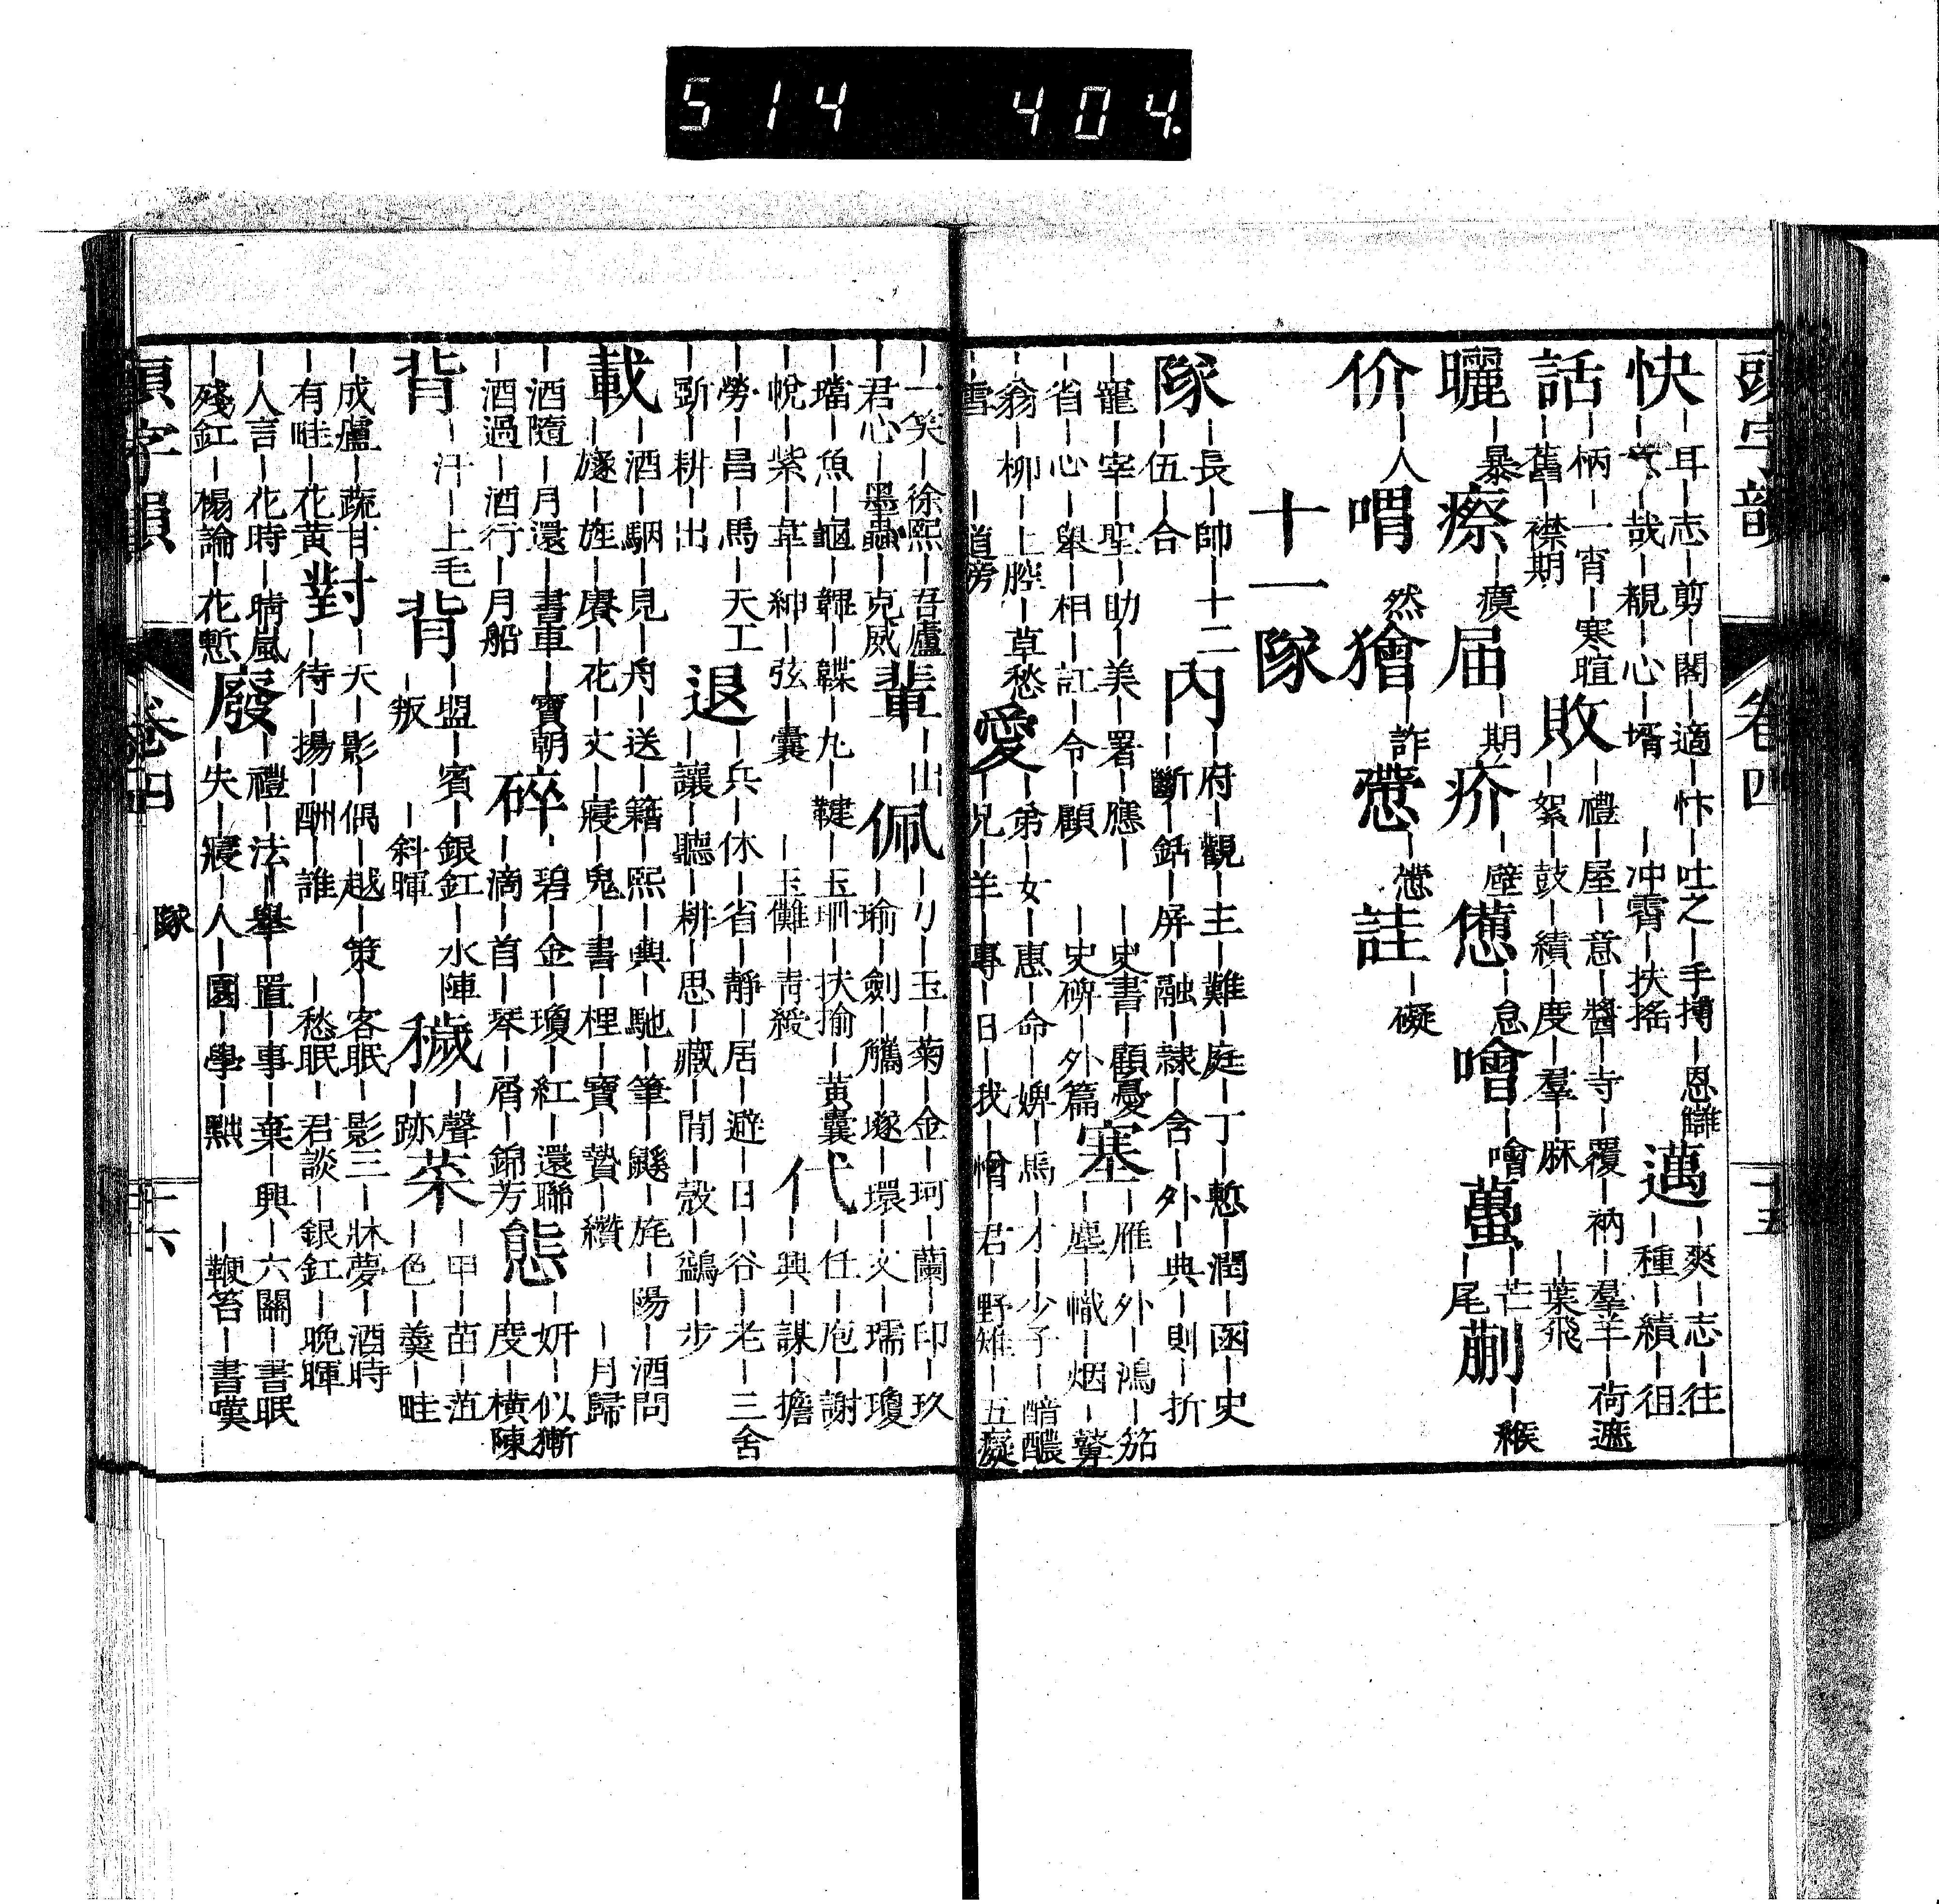 514 404.
頭字韻 卷四 十五
快 ｜耳｜志｜剪｜閣｜適｜忭｜吐之｜手搏｜恩讎
｜哉｜覩｜心｜壻 ｜冲霄｜扶搖
邁 ｜爽｜志｜往
｜種｜績｜徂
話 ｜柄｜一宵｜寒暄
｜舊｜襟期
敗 ｜禮｜屋｜意｜醬｜寺｜覆｜衲｜羣羊｜荷遮
｜絮｜鼓｜績｜度｜羣｜麻 ｜葉飛
曬 ｜暴 瘵 ｜瘼 届 ｜期 疥 ｜壁 憊 ｜怠 噲 ｜噲 蠆 ｜芒｜尾 蒯 ｜緱
价 ｜人 喟 ｜然 獪 ｜詐 懘 ｜懘 詿 ｜礙
十一隊
隊 ｜長｜帥｜十二
｜伍｜合
內 ｜府｜觀｜主｜難｜庭｜丁｜慙｜潤｜函｜史
｜斷｜銛｜屏｜融｜隷｜含｜外｜典｜則｜折
｜寵｜宰｜聖｜助｜美｜署｜應｜ ｜史書｜顧憂
｜省｜心｜舉｜相｜訌｜令｜顧 ｜史碑｜外篇
塞 ｜雁｜外｜鴻｜笳
｜塵｜幟｜烟｜鼙
｜翁｜柳｜上腔｜草愁
｜雪 ｜道旁
愛 ｜弟｜女｜惠｜命｜婢｜馬｜才｜少子｜醅醲
｜兄｜羊｜專｜日｜我｜憎｜君｜野雉｜五癡
｜一笑｜徐熙｜吾廬
｜君心｜墨蟲｜克威
輩 ｜出
佩 ｜刂｜玉｜菊｜金｜珂｜蘭｜印｜玖
｜瑜｜劍｜觿｜璲｜環｜文｜瓀｜瓊
｜璫｜魚｜龜｜韗｜韘｜九｜鞬｜玉珊｜扶揄｜黃囊
｜帨｜紫｜韋｜紳｜弦｜囊 ｜玉儺｜靑綬
代 ｜任｜庖｜謝
｜興｜謀｜擔
｜勞｜昌｜馬｜天工
｜斲｜耕｜出
退 ｜兵｜休｜省｜靜｜居｜避｜日｜谷｜老｜三舍
｜讓｜聽｜耕｜思｜藏｜閒｜殼｜鷁｜步
載 ｜酒｜駟｜見｜舟｜送｜籍｜熙｜輿｜馳｜筆｜鷁｜旄｜陽｜酒問
｜旌｜賡｜花｜文｜寢｜鬼｜書｜梩｜寶｜贄｜纘 ｜月歸
｜酒隨｜月還｜書車｜寶朝
｜酒過｜酒行｜月船
碎 ｜碧｜金｜瓊｜紅｜還聯
｜滴｜首｜琴｜屑｜錦芳
態 ｜妍｜似獑
｜度｜橫陳
背 ｜汗｜上毛
背 ｜盟｜賓｜銀釭｜水陣
｜叛 ｜斜暉
穢 ｜聲
｜跡
菜 ｜甲｜苗｜菹
｜色｜羹｜畦
｜成廬｜蔬甘
｜有畦｜花黃
對 ｜天｜影｜偶｜越｜策｜客眠｜影三｜牀夢｜酒時
｜待｜揚｜酬｜誰 ｜愁眠｜君談｜銀釭｜晚暉
｜人言｜花時｜晴嵐
｜殘釭｜榻論｜花慙
廢 ｜禮｜法｜舉｜置｜事｜棄｜興｜六關｜書眠
｜失｜寢｜人｜圜｜學｜黜 ｜鞭笞｜書嘆
頭字韻 卷四 隊 十六